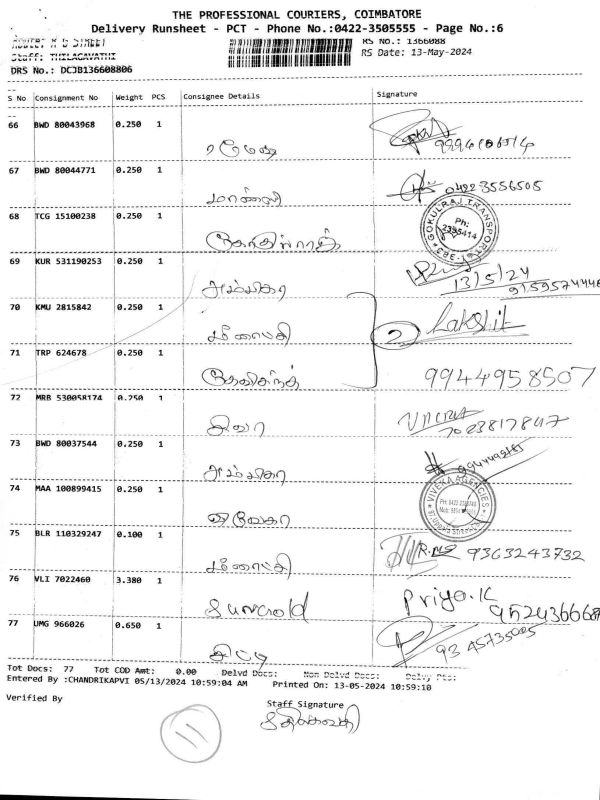 THE PROFESSIONAL COURIERS, COIMBATORE
Delivery Runsheet - PCT - Phone No.:0422-3505555 - Page No.:6
RS No.: 1366088
RS Date: 13-May-2024
Staff: THILAGAVATHI
DRS No.: DCJB136608806
S No Consignment No Weight PCS Consignee Details Signature
66 BWD 80043968 0.250 1
ரமேஷ்
67 BWD 80044771 0.250 1 04223556505
68 TCG 15100238 0.250 1
GOKULRAJ TRANSPORT
Ph:
2395414
69 KUR 531190253 0.250 1
அம்பிகா 13/5/24
70 KMU 2815842 0.250 1 2 Lakshit
மீனாட்சி
71 TRP 624678 0.250 1 9944958507
72 MRB 530058174 0.250 1
சிவா 7023817847
73 BWD 80037544 0.250 1
அம்பிகா
74 MAA 100899415 0.250 1 VIVEKA AGENCIES
விவேகா
75 BLR 110329247 0.100 1 9363243732
மீனாட்சி
76 VLI 7022460 3.380 1 Priya.K
77 UMG 966026 0.650 1
Tot Docs: 77 Tot COD Amt: 0.00 Delvd Docs: Non Delvd Docs: Delvy Pts:
Entered By :CHANDRIKAPVI 05/13/2024 10:59:04 AM Printed On: 13-05-2024 10:59:10
Verified By Staff Signature
திலகவதி